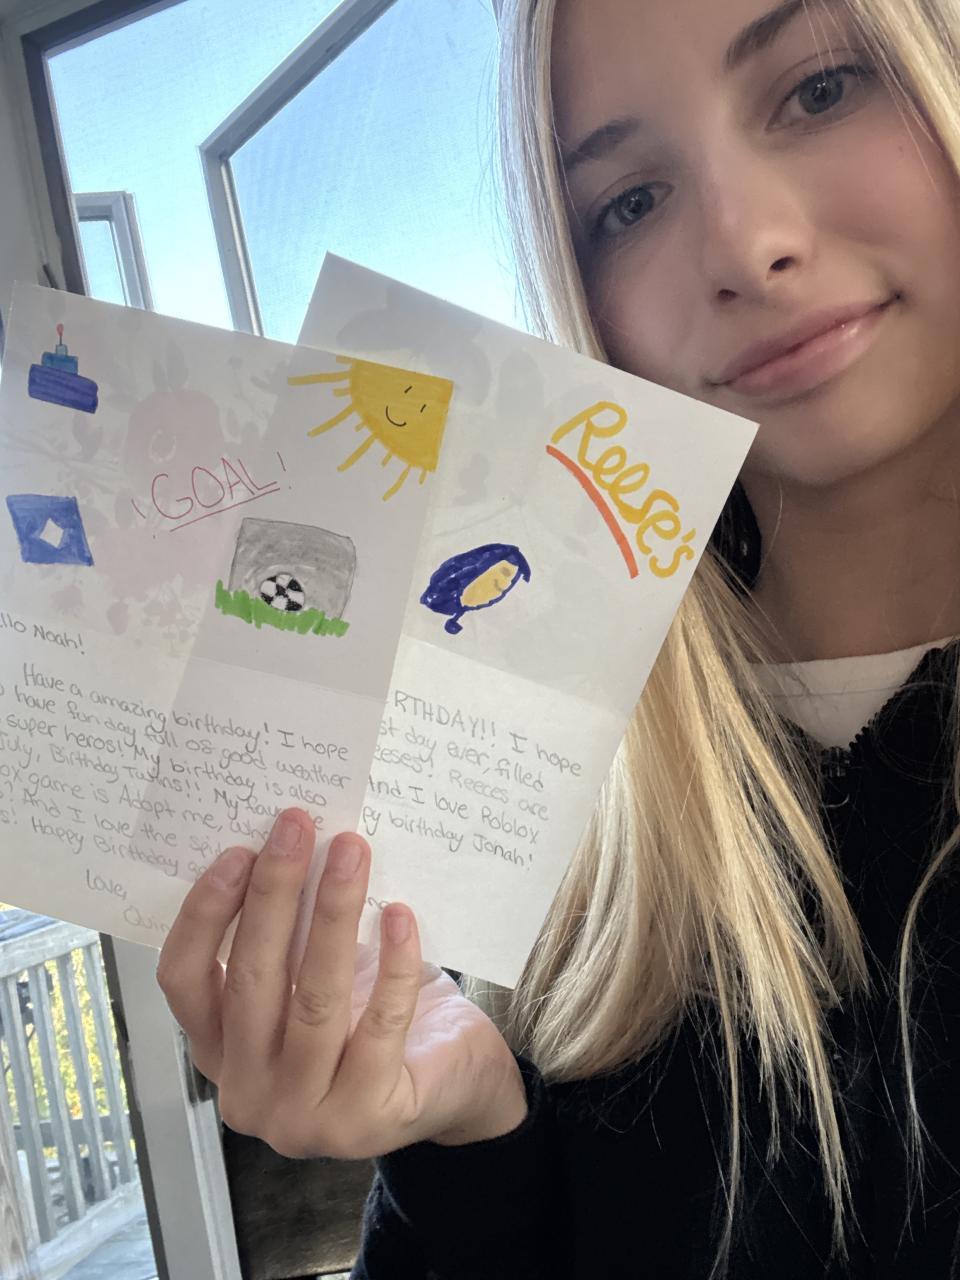 ¡GOAL!
Reese's
llo Noah!
Have a amazing birthday! I hope
have fun day full of good weather
super heros! My birthday is also
July, Birthday Twins!! My favou
ox game is Adopt me, wha
? And I love the spid
s! Happy Birthday ag
love,
Quin
RTHDAY!! I hope
st day ever, filled
eeses! Reeces are
And I love Roblox
py birthday Jonah!